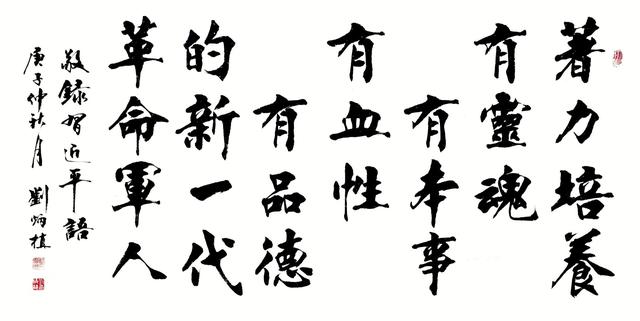 著力培養
有靈魂
有本事
有血性
有品德
的新一代
革命軍人
敬錄習近平語
庚子仲秋月 劉炳植